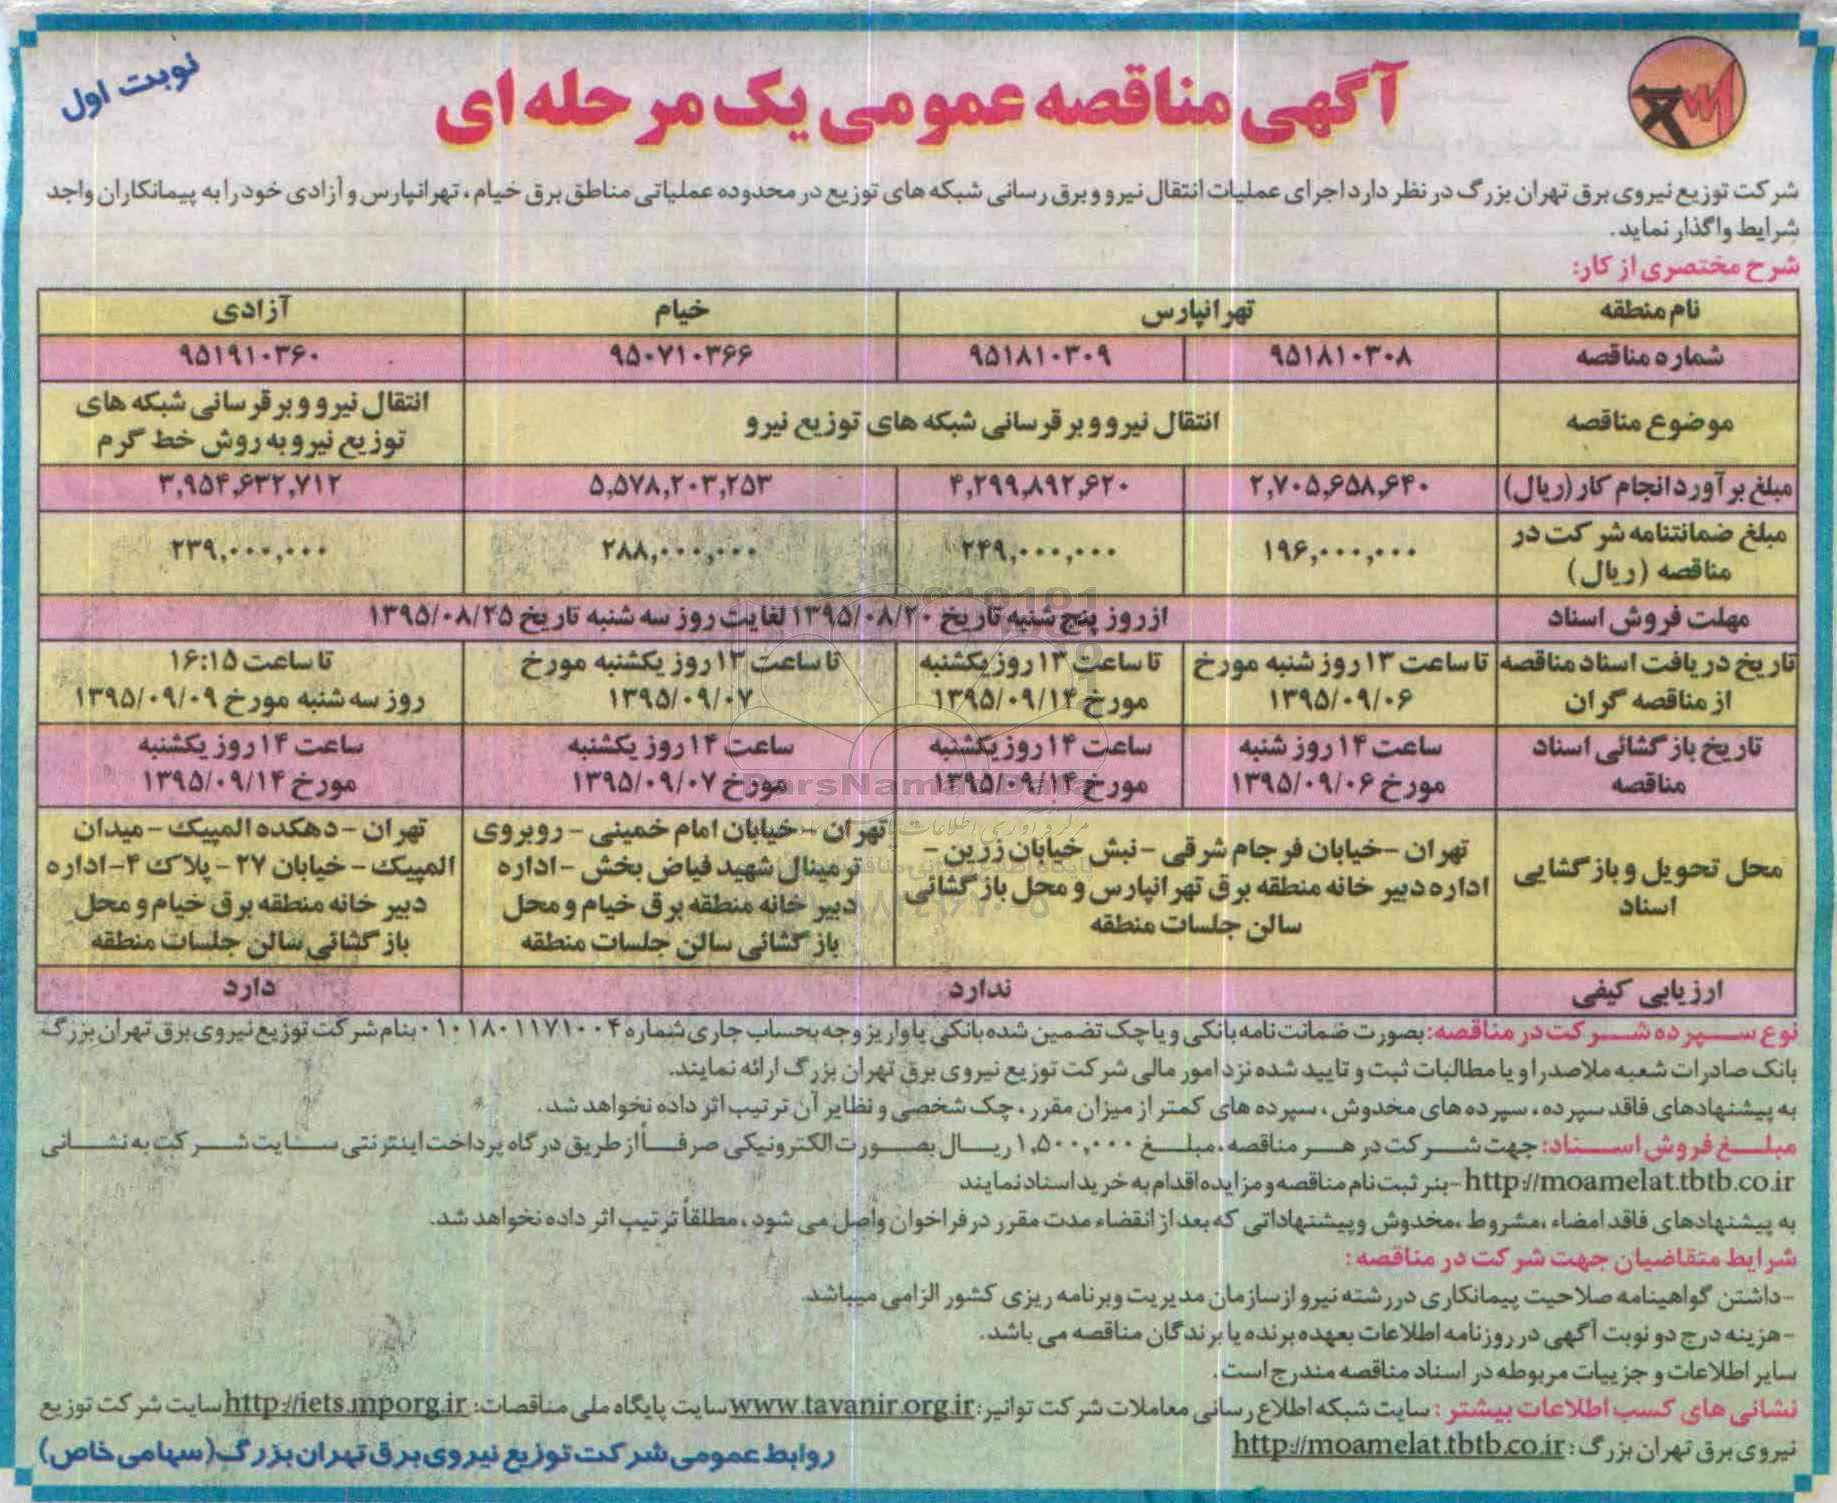 نوبت اول
آگهی مناقصه عمومی یک مرحله ای
شرکت توزیع نیروی برق تهران بزرگ در نظر دارد اجرای عملیات انتقال نیرو و برق رسانی شبکه های توزیع در محدوده عملیاتی مناطق برق خیام ، تهرانپارس و آزادی خود را به پیمانکاران واجد
شرایط واگذار نماید.
شرح مختصری از کار:
نام منطقه تهرانپارس خیام آزادی
شماره مناقصه ۹۵۱۸۱۰۳۰۸ ۹۵۱۸۱۰۳۰۹ ۹۵۰۷۱۰۳۶۶ ۹۵۱۹۱۰۳۶۰
موضوع مناقصه انتقال نیرو و برقرسانی شبکه های توزیع نیرو انتقال نیرو و برقرسانی شبکه های
توزیع نیرو به روش خط گرم
مبلغ برآورد انجام کار (ریال) ۲,۷۰۵,۶۵۸,۶۴۰ ۴,۲۹۹,۸۹۲,۶۲۰ ۵,۵۷۸,۲۰۳,۲۵۳ ۳,۹۵۴,۶۳۲,۷۱۲
مبلغ ضمانتنامه شرکت در
مناقصه (ریال) ۱۹۶,۰۰۰,۰۰۰ ۲۴۹,۰۰۰,۰۰۰ ۲۸۸,۰۰۰,۰۰۰ ۲۳۹,۰۰۰,۰۰۰
مهلت فروش اسناد از روز پنج شنبه تاریخ ۱۳۹۵/۰۸/۲۰ لغایت روز سه شنبه تاریخ ۱۳۹۵/۰۸/۲۵
تاریخ دریافت اسناد مناقصه تا ساعت ۱۳ روز شنبه مورخ تا ساعت ۱۳ روز یکشنبه تا ساعت ۱۳ روز یکشنبه مورخ تا ساعت ۱۶:۱۵
از مناقصه گران ۱۳۹۵/۰۹/۰۶ مورخ ۱۳۹۵/۰۹/۱۴ ۱۳۹۵/۰۹/۰۷ روز سه شنبه مورخ ۱۳۹۵/۰۹/۰۹
تاریخ بازگشائی اسناد ساعت ۱۴ روز شنبه ساعت ۱۴ روز یکشنبه ساعت ۱۴ روز یکشنبه ساعت ۱۴ روز یکشنبه
مناقصه مورخ ۱۳۹۵/۰۹/۰۶ مورخ ۱۳۹۵/۰۹/۱۴ مورخ ۱۳۹۵/۰۹/۰۷ مورخ ۱۳۹۵/۰۹/۱۴
محل تحویل و بازگشایی
اسناد
تهران - خیابان فرجام شرقی - نبش خیابان زرین -
اداره دبیر خانه منطقه برق تهرانپارس و محل بازگشائی
سالن جلسات منطقه
تهران - خیابان امام خمینی - روبروی
ترمینال شهید فیاض بخش - اداره
دبیر خانه منطقه برق خیام و محل
بازگشائی سالن جلسات منطقه
تهران - دهکده المپیک - میدان
المپیک - خیابان ۲۷ - پلاک ۴ - اداره
دبیر خانه منطقه برق خیام و محل
بازگشائی سالن جلسات منطقه
ارزیابی کیفی ندارد دارد
نوع سپرده شرکت در مناقصه: بصورت ضمانت نامه بانکی و یا چک تضمین شده بانکی یا واریز وجه بحساب جاری شماره ۰۱۰۱۸۰۱۱۷۱۰۰۴ بنام شرکت توزیع نیروی برق تهران بزرگ
بانک صادرات شعبه ملاصدرا و یا مطالبات ثبت و تایید شده نزد امور مالی شرکت توزیع نیروی برق تهران بزرگ ارائه نمایند.
به پیشنهادهای فاقد سپرده ، سپرده های مخدوش ، سپرده های کمتر از میزان مقرر ، چک شخصی و نظایر آن ترتیب اثر داده نخواهد شد.
مبلغ فروش اسناد: جهت شرکت در هر مناقصه ، مبلغ ۱,۵۰۰,۰۰۰ ریال بصورت الکترونیکی صرفاً از طریق درگاه پرداخت اینترنتی سایت شرکت به نشانی
http://moamelat.tbtb.co.ir - بنر ثبت نام مناقصه و مزایده اقدام به خرید اسناد نمایند
به پیشنهادهای فاقد امضاء ،مشروط ،مخدوش و پیشنهاداتی که بعد از انقضاء مدت مقرر در فراخوان واصل می شود ، مطلقاً ترتیب اثر داده نخواهد شد.
شرایط متقاضیان جهت شرکت در مناقصه :
- داشتن گواهینامه صلاحیت پیمانکاری در رشته نیرو از سازمان مدیریت و برنامه ریزی کشور الزامی میباشد.
- هزینه درج دو نوبت آگهی در روزنامه اطلاعات بعهده برنده یا برندگان مناقصه می باشد.
سایر اطلاعات و جزییات مربوطه در اسناد مناقصه مندرج است.
نشانی های کسب اطلاعات بیشتر : سایت شبکه اطلاع رسانی معاملات شرکت توانیر: www.tavanir.org.ir سایت پایگاه ملی مناقصات: http://iets.mporg.ir سایت شرکت توزیع
نیروی برق تهران بزرگ : http://moamelat.tbtb.co.ir
روابط عمومی شرکت توزیع نیروی برق تهران بزرگ (سهامی خاص)